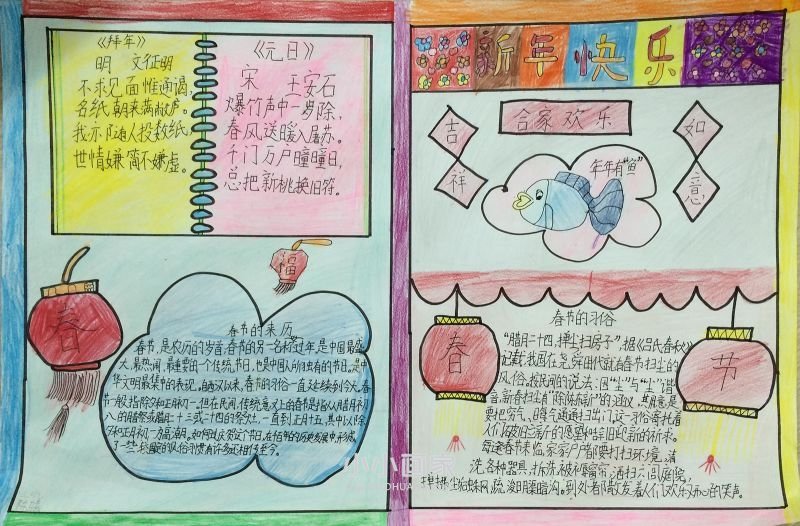 《拜年》
明 文征明
不求见面惟通谒,
名纸朝来满敝庐。
我亦随人投数纸,
世情嫌简不嫌虚。
《元日》
宋 王安石
爆竹声中一岁除,
春风送暖入屠苏。
千门万户曈曈日,
总把新桃换旧符。
春
福
春节的来历
春节,是农历的岁首,春节的另一名称过年,是中国最盛
大、最热闹、最重要的一个传统节日,也是中国人所独有的节日。是中
华文明最集中的表现。自西汉以来,春节的习俗一直延续到今天。春
节一般指除夕和正月初一。但在民间,传统意义上的春节是指从腊月初
八的腊祭或腊月二十三或二十四的祭灶,一直到正月十五,其中以除
夕和正月初一为高潮。如何过庆贺这个节日,在千百年的历史发展中,形成
了一些较固定的风俗习惯,有许多还相传至今。
新年快乐
合家欢乐
吉祥
如意
年年有“鱼”
春节的习俗
“腊月二十四,掸尘扫房子”,据《吕氏春秋》
记载,我国在尧舜时代就有春节扫尘的
风俗。按民间的说法:因“尘”与“陈”谐
音,新春扫尘有“除陈布新”的涵义,其用意是
要把穷气、晦气通通扫出门。这一习俗寄托着
人们破旧立新的愿望和辞旧迎新的祈求。
每逢春节来临,家家户户都要打扫环境,清
洗各种器具,拆洗被褥窗帘,洒扫六闾庭院,
掸拂尘垢蛛网,疏浚明渠暗沟。到处者散发着人们欢乐开心的笑声。
春
节